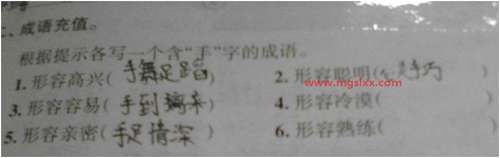 二、成语充值。
根据提示各写一个含“手”字的成语。
1. 形容高兴(手舞足蹈) 2. 形容聪明(心灵手巧
www.mgslxx.com
3. 形容容易(手到擒来) 4. 形容冷漠(
5. 形容亲密(手足情深) 6. 形容熟练(